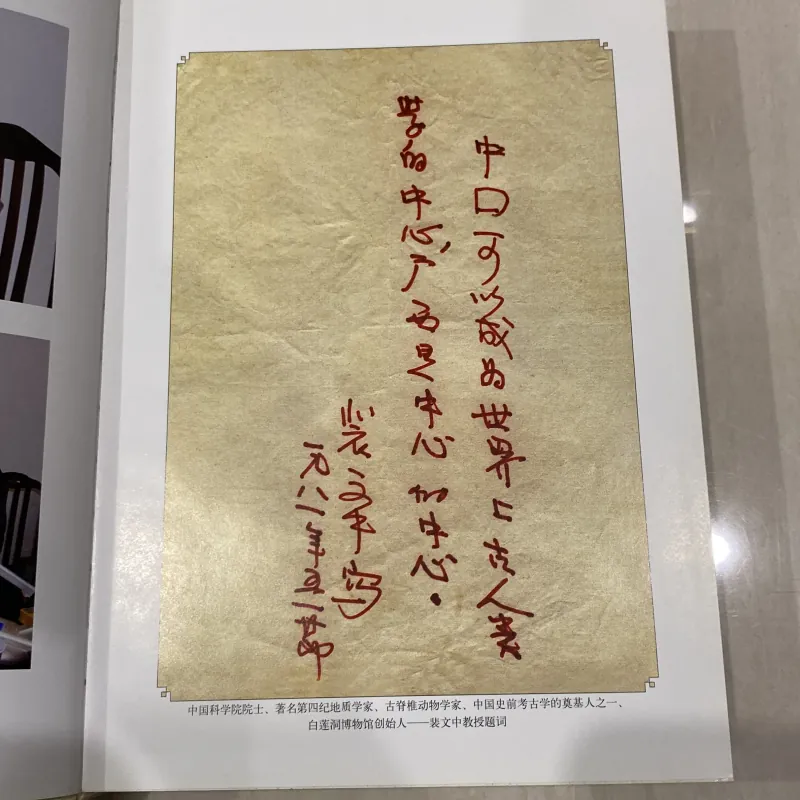 中国可以成为世界上古人类
学的中心,广西是中心的中心。
裴文中写
一九八一年五一节
中国科学院院士、著名第四纪地质学家、古脊椎动物学家、中国史前考古学的奠基人之一、
白莲洞博物馆创始人——裴文中教授题词